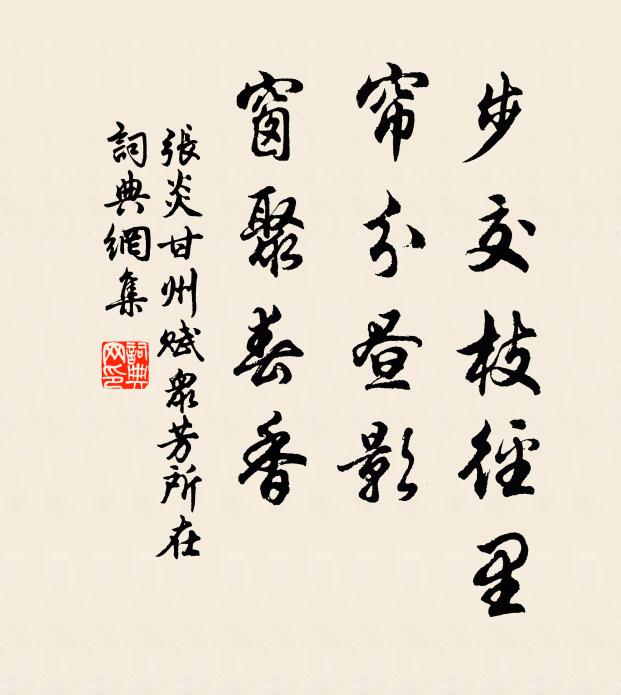 步交枝徑里
帘分昼影
窗聚春香
張炎甘州賦眾芳所在
詞典網集
詞典
网印